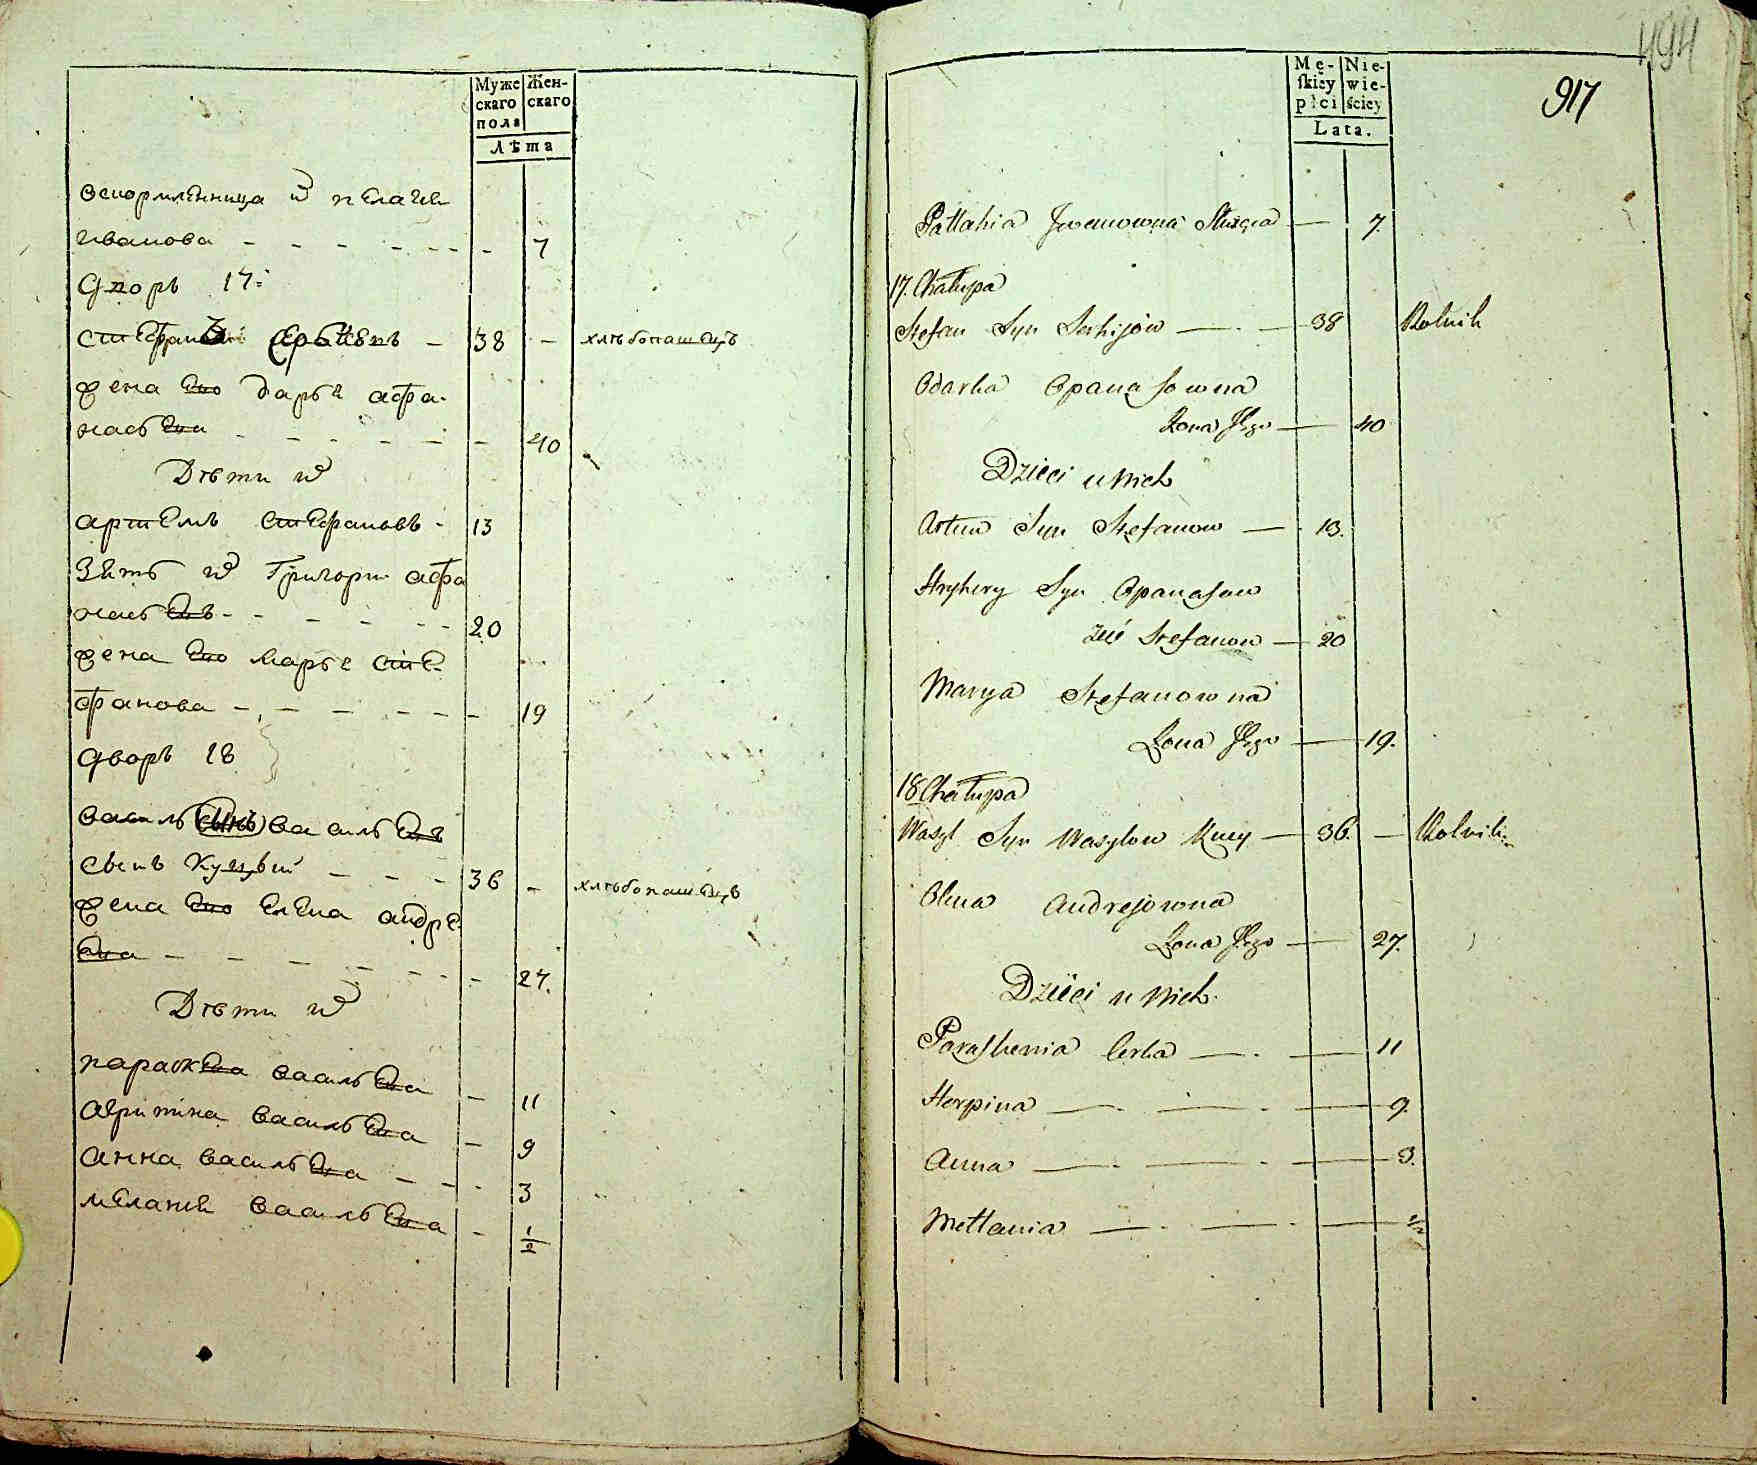 Муже
скаго
пола
Жен-
скаго
Лѣта
вскормленница
иванова - - - - - - - 7
Дворъ 17:
38 - хлѣбопашецъ
жена его дарья афа-
насьева - - - - - - 40
Дѣти
артемъ стефановъ - 13
Зять григори афа
насьевъ - - - - - - 20
жена его марье сте-
фанова - - - - - - - 19
дворъ 18
василь василь евъ
сынъ куцый - - - - 36 - хлѣбопашецъ
жена его елена андре-
ева - - - - - - - - 27.
Дѣти
параскева васильева - 11
агрипина васильева - 9
анна васильева - - - 3
мелания васильева - 1/2
494
917
Mę-
skiey
płci
Nie-
wie-
ściey
Lata.
Pallahia Iwanowna Sługa — 7.
17. Chałupa
Stefan Syn Serhijów — . — 38 Rolnik
Odarka Opanasowna
Żona Jego — 40
Dzieci u Nich
Artem Syn Stefanow — . 13.
Hryhory Syn Opanasow
Zięć Stefanow — 20
Marya Stefanowna
Żona Jego — 19.
18 Chałupa
Wasyl Syn Wasylow Kucy — 36. — Rolnik.
Olena Andrejowna
Żona Jego — 27.
Dzieci u Nich.
Paraskewia Corka — . — 11
Horpina — . — . — 9.
Anna — . — . — 3.
Mellania — . — . — 1/2